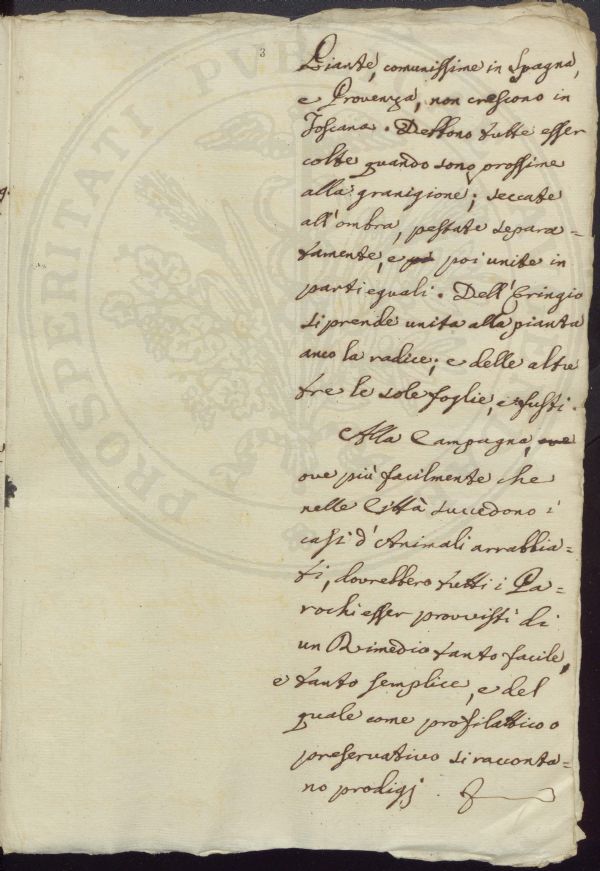 3
Piante, comunissime in Spagna,
e Provenza, non crescono in
Toscana. Debbono tutte esser
colte quando sono prossime
alla granigione; seccate
all'ombra, pestate separa=
tamente, e poi unite in
parti eguali. Dell'Eringio
si prende unita alla pianta
anco la radice; e delle altre
tre le sole foglie, e fusti.
Alla Campagna, ove
ove più facilmente che
nelle Città succedono i
casi d'Animali arrabbia=
ti, dovrebbero tutti i Pa=
rochi esser provvisti di
un Rimedio tanto facile,
e tanto semplice, e del
quale come profilattico o
preservativo si racconta=
no prodigj
PROSPERITATI PVBLICAE